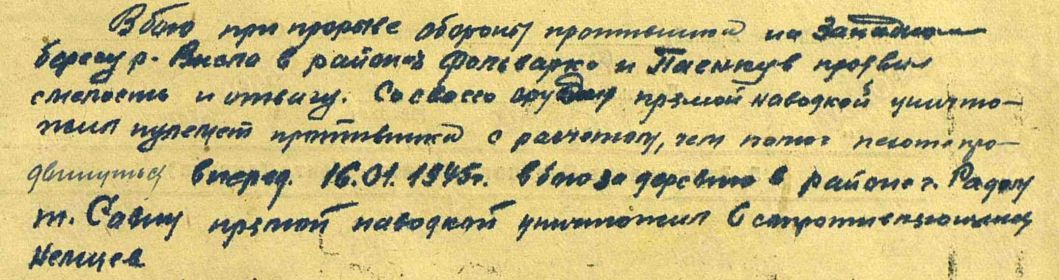 В бою при прорыве обороны противника на Западном
берегу р. Висла в районах Фольварка и проявил
смелость и отвагу. Со своего орудия прямой наводкой уничто-
жил пулемет противника с расчетом, чем помог пехоте про-
двинуться вперед. 16.01.1945г. в бою за деревню в районе г. Радом
т. прямой наводкой уничтожил 6 сопротивляющихся
немцев